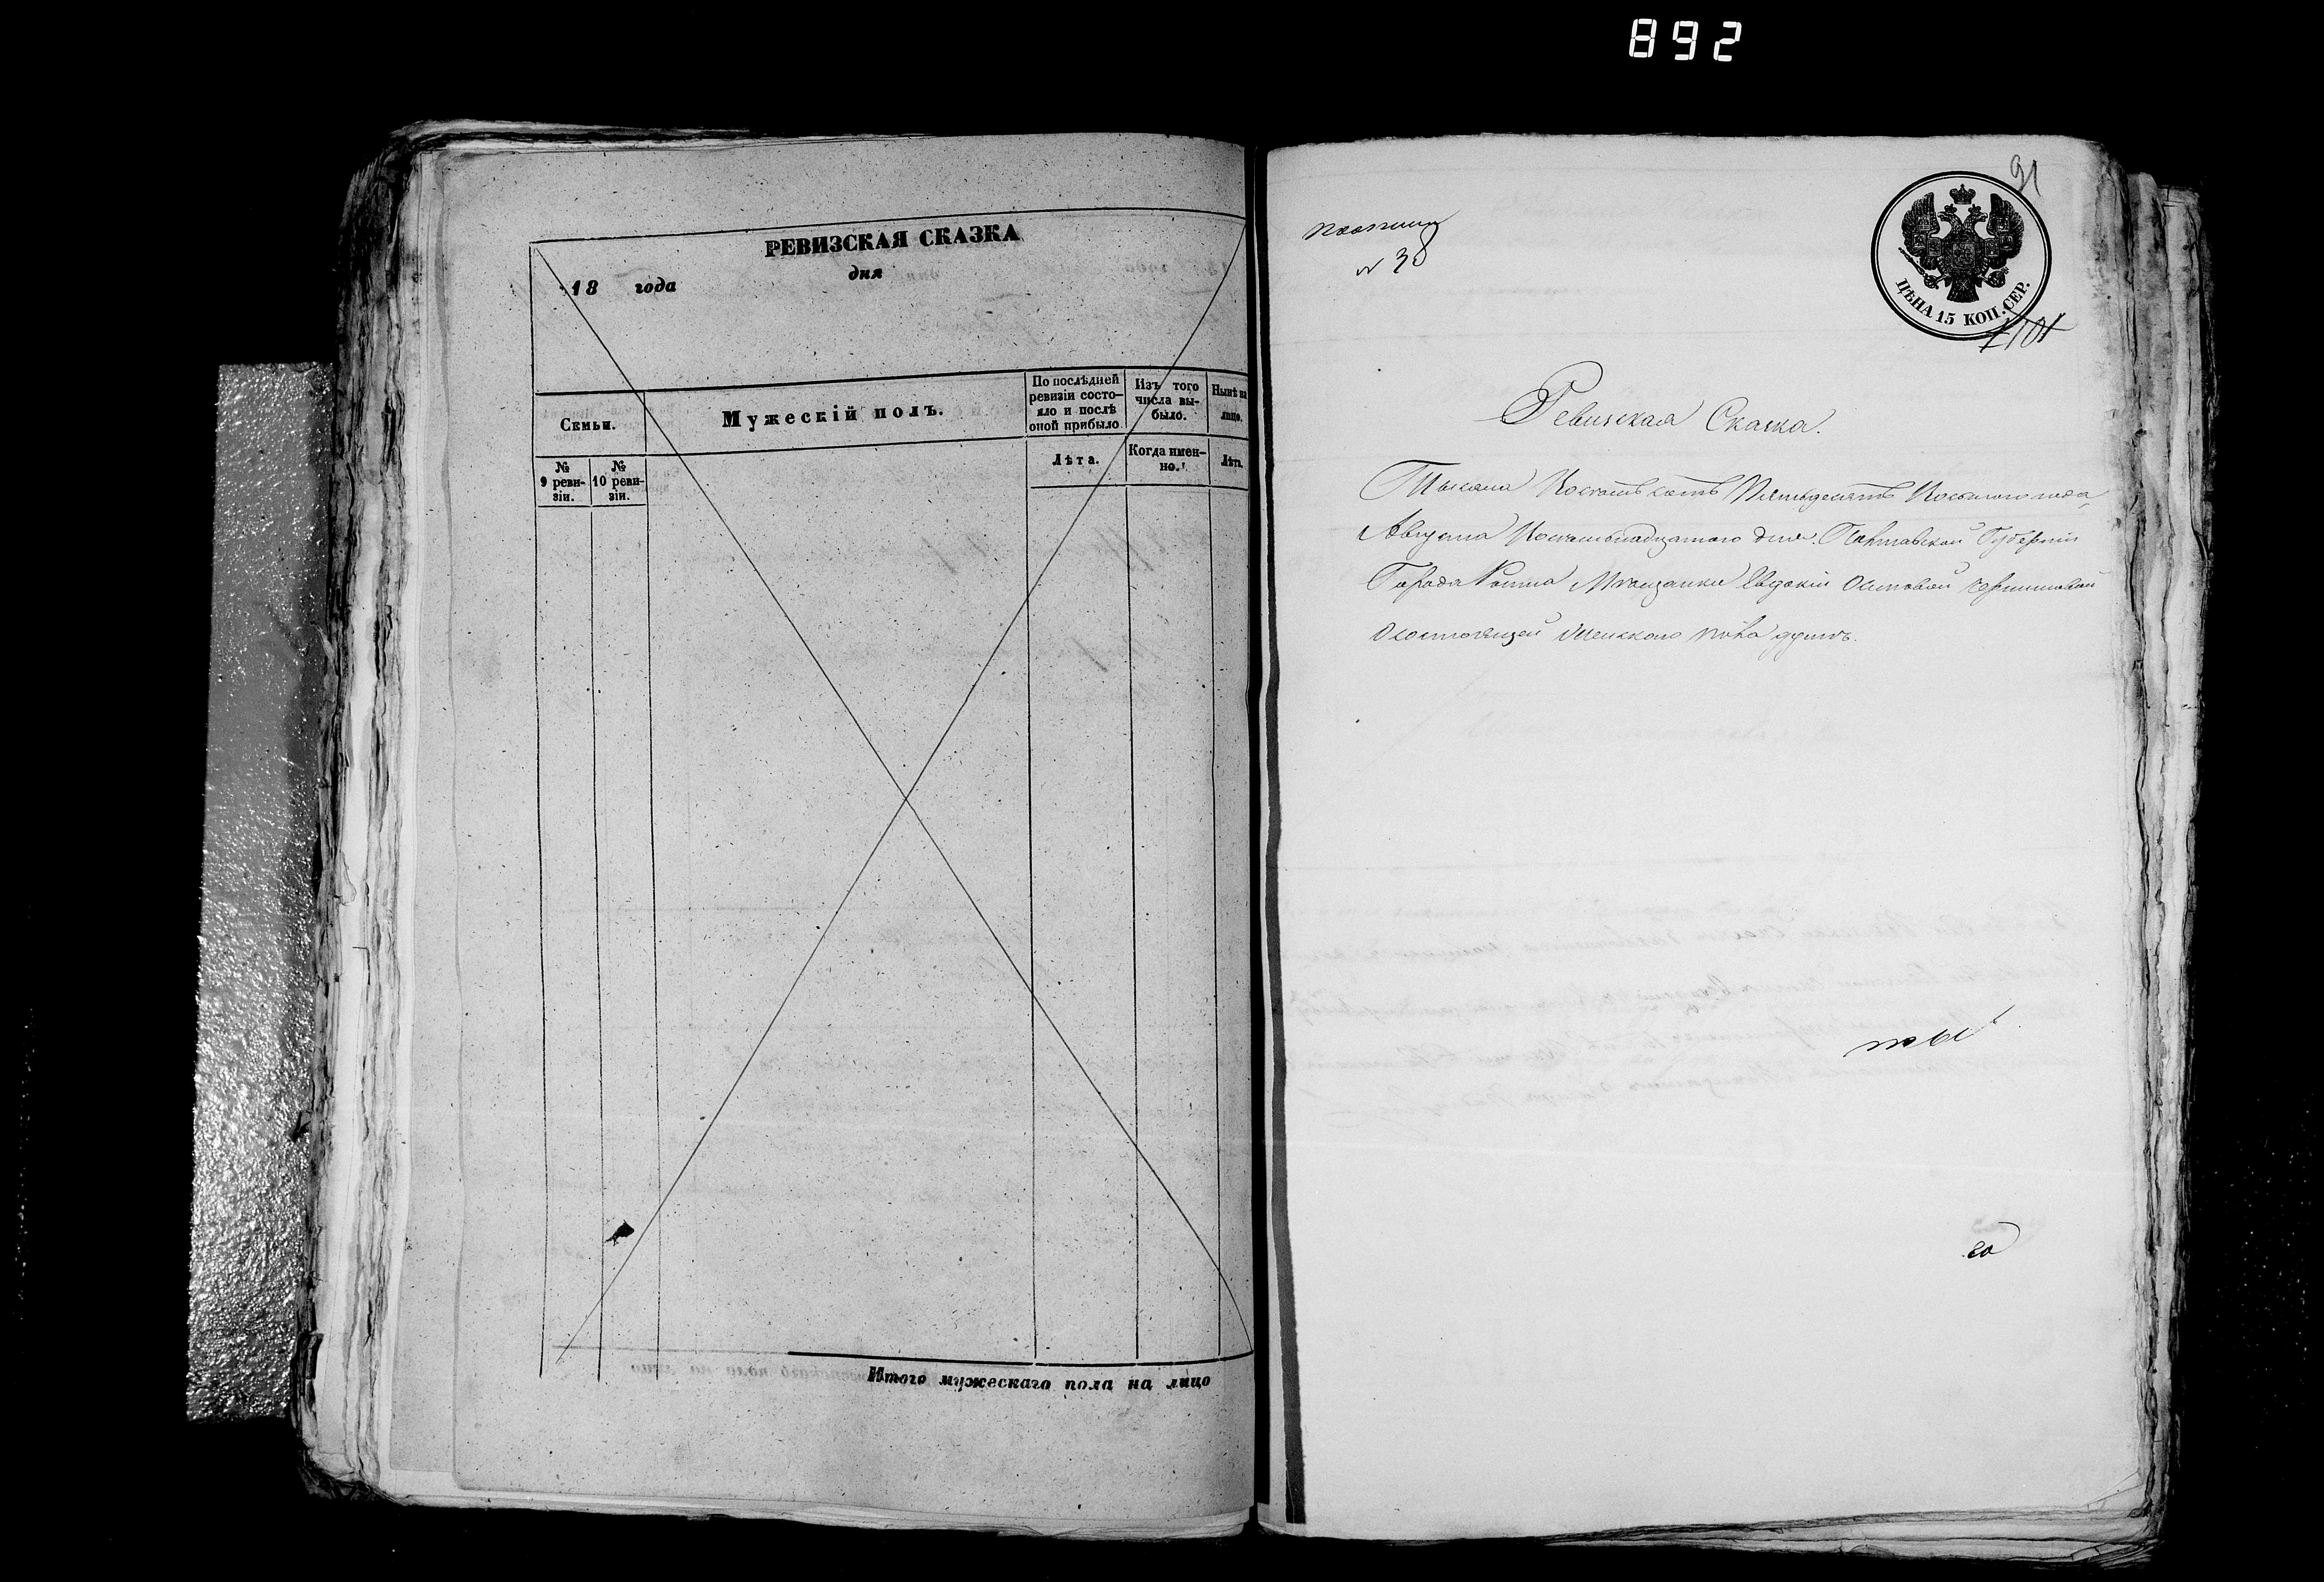 892
РЕВИЗСКАЯ СКАЗКА
18 года дня
Семьи.
Мужескій полъ.
По послѣдней ревизіи состояло и послѣ оной прибыло
Изъ того числа выбыло.
Нынѣ на лицо.
№ 9 ревизіи.
№ 10 ревизіи.
Лѣта.
Когда именно.
Лѣта.
Итого мужескаго пола на лицо
91
№ 38
ЦѢНА 15 КОП. СЕР.
Ревизская Сказка.
Тысяча Восемьсотъ Пятьдесятъ Восьмого года
Августа Восемьнадцатого дня. Полтавской Губерніи
Города Ромна Мѣщанки Евдокіи Осиповой
О состоящей Женского пола душъ.